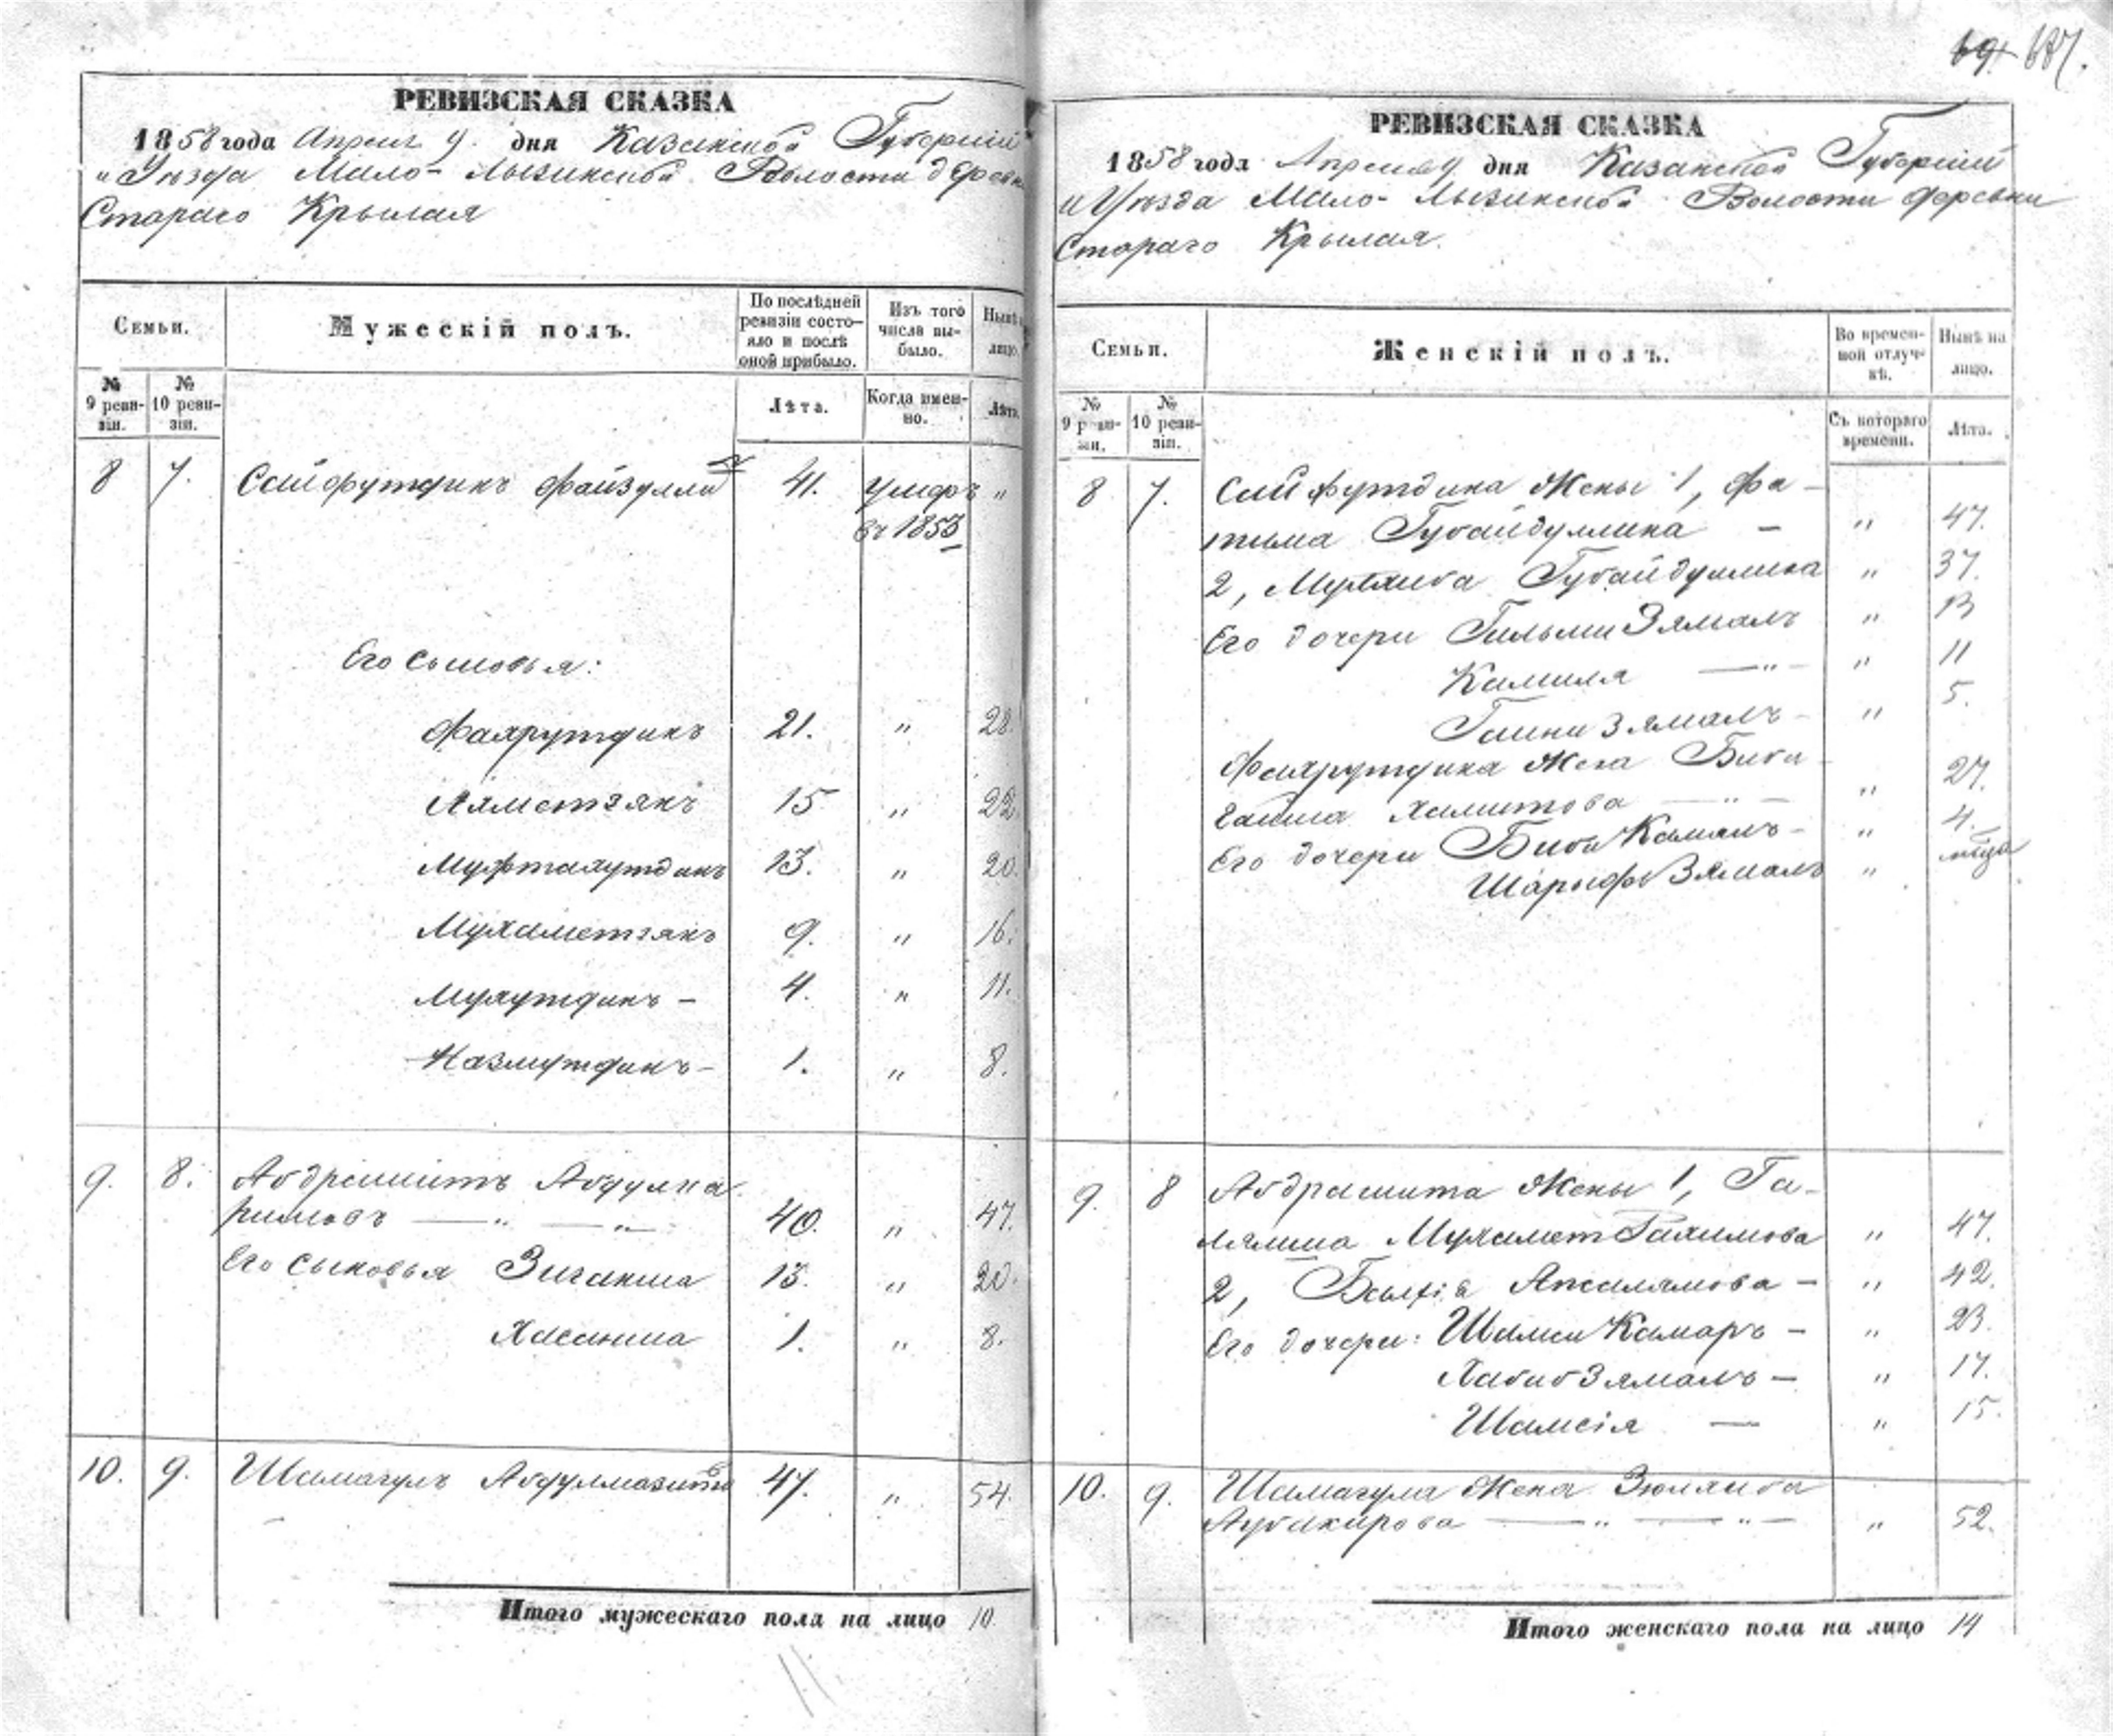 69. 687.
РЕВИЗСКАЯ СКАЗКА
1858 года Апреля 9. дня Казанской Губерніи
и Уѣзда Мало-Лызинской Волости деревни
Стараго Крылая
Семьи.
Мужескій полъ.
По послѣдней ревизіи состояло и послѣ оной прибыло.
Изъ того числа выбыло.
Нынѣ на лицо.
№ 9 ревизіи.
№ 10 ревизіи.
Лѣта.
Когда именно.
Лѣта.
8 7. Сайфутдинъ Файзуллинъ 41. умеръ "
въ 1853
Его сыновья:
Фахрутдинъ 21. " 28.
Ахметзянъ 15 " 22.
Мифтахутдинъ 13. " 20.
Мухаметзянъ 9. " 16.
Мухутдинъ - 4. " 11.
Назмутдинъ - 1. " 8.
9. 8. Абдрашитъ Абдулка
римовъ — " — " — 40. " 47.
Его сыновья Зиганша 13. " 20.
Хасанша 1. " 8.
10. 9. Шамагулъ Абдулмазитовъ 47. " 54.
Итого мужескаго пола на лицо 10.
11.
РЕВИЗСКАЯ СКАЗКА
1858 года Апреля 9 дня Казанской Губерніи
и Уѣзда Мало-Лызинской Волости деревни
Стараго Крылая.
Семьи.
Женскій полъ.
Во временной отлучкѣ.
Нынѣ на лицо.
№ 9 ревизіи.
№ 10 ревизіи.
Съ котораго времени.
Лѣта.
8 7. Сайфутдина Жены 1, Фа-
тима Губайдуллина - " 47.
2, Губайдуллина " 37.
Его дочери Гильми Зямалъ " 13
Камиля — " — " 11
Гайни Зямалъ - " 5.
Фахрутдина Жена Биби
Хамитова — " — " 27.
Его дочери Биби Камалъ - " 4.
Шарифъ Зямалъ " мѣсца
9. 8 Абдрашита Жены 1, Га-
лямша Мухамет Рахимова " 47.
2, Апсалямова - " 42.
Его дочери: Шамси Камаръ - " 23.
Хабиб Зямалъ - " 17.
Шамсія — " 15.
10. 9. Шамагула Жена Зюляиба
Аубакирова — " — " — " 52.
Итого женскаго пола на лицо 14